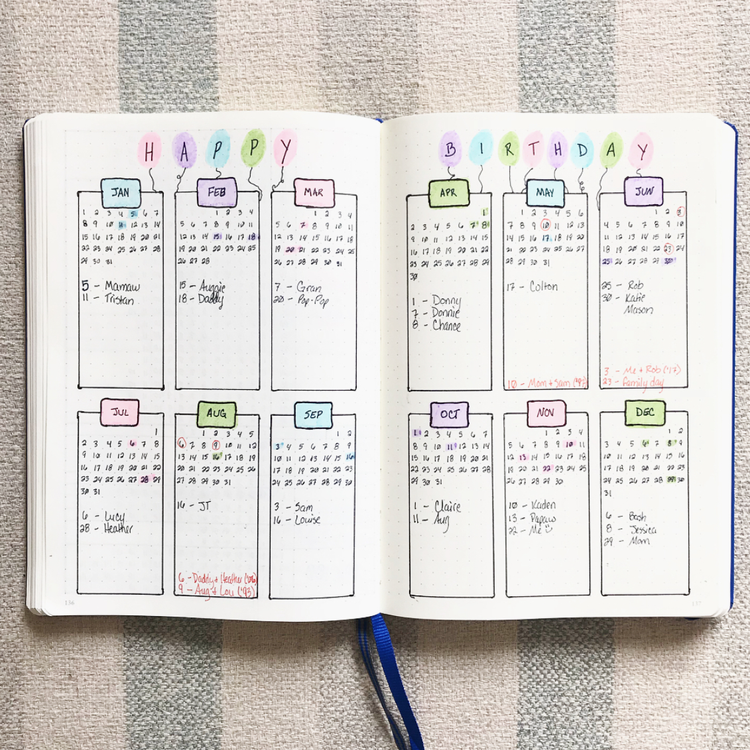 HAPPY
BIRTHDAY
JAN
1 2 3 4 5 6 7
8 9 10 11 12 13 14
15 16 17 18 19 20 21
22 23 24 25 26 27 28
29 30 31
5 - Mamaw
11 - Tristan
FEB
1 2 3 4
5 6 7 8 9 10 11
12 13 14 15 16 17 18
19 20 21 22 23 24 25
26 27 28
15 - Auggie
18 - Daddy
MAR
1 2 3 4
5 6 7 8 9 10 11
12 13 14 15 16 17 18
19 20 21 22 23 24 25
26 27 28 29 30 31
7 - Gran
20 - Pop-Pop
APR
1
2 3 4 5 6 7 8
9 10 11 12 13 14 15
16 17 18 19 20 21 22
23 24 25 26 27 28 29
30
1 - Donny
7 - Donnie
8 - Chance
MAY
1 2 3 4 5 6
7 8 9 10 11 12 13
14 15 16 17 18 19 20
21 22 23 24 25 26 27
28 29 30 31
17 - Colton
10 - Mom + Sam
JUN
1 2 3
4 5 6 7 8 9 10
11 12 13 14 15 16 17
18 19 20 21 22 23 24
25 26 27 28 29 30
25 - Rob
30 - Katie
Mason
3 - Me + Rob
23 - Family day
JUL
1
2 3 4 5 6 7 8
9 10 11 12 13 14 15
16 17 18 19 20 21 22
23 24 25 26 27 28 29
30 31
6 - Lucy
28 - Heather
AUG
1 2 3 4 5
6 7 8 9 10 11 12
13 14 15 16 17 18 19
20 21 22 23 24 25 26
27 28 29 30 31
16 - JT
6 - Daddy + Heather
9 - Aug + Lou ('93)
SEP
1 2
3 4 5 6 7 8 9
10 11 12 13 14 15 16
17 18 19 20 21 22 23
24 25 26 27 28 29 30
3 - Sam
16 - Louise
OCT
1 2 3 4 5 6 7
8 9 10 11 12 13 14
15 16 17 18 19 20 21
22 23 24 25 26 27 28
29 30 31
1 - Claire
11 - Aug
NOV
1 2 3 4
5 6 7 8 9 10 11
12 13 14 15 16 17 18
19 20 21 22 23 24 25
26 27 28 29 30
10 - Kaden
13 - Papaw
22 - Me
DEC
1 2
3 4 5 6 7 8 9
10 11 12 13 14 15 16
17 18 19 20 21 22 23
24 25 26 27 28 29 30
31
6 - Bash
8 - Jessica
29 - Mom
136
137